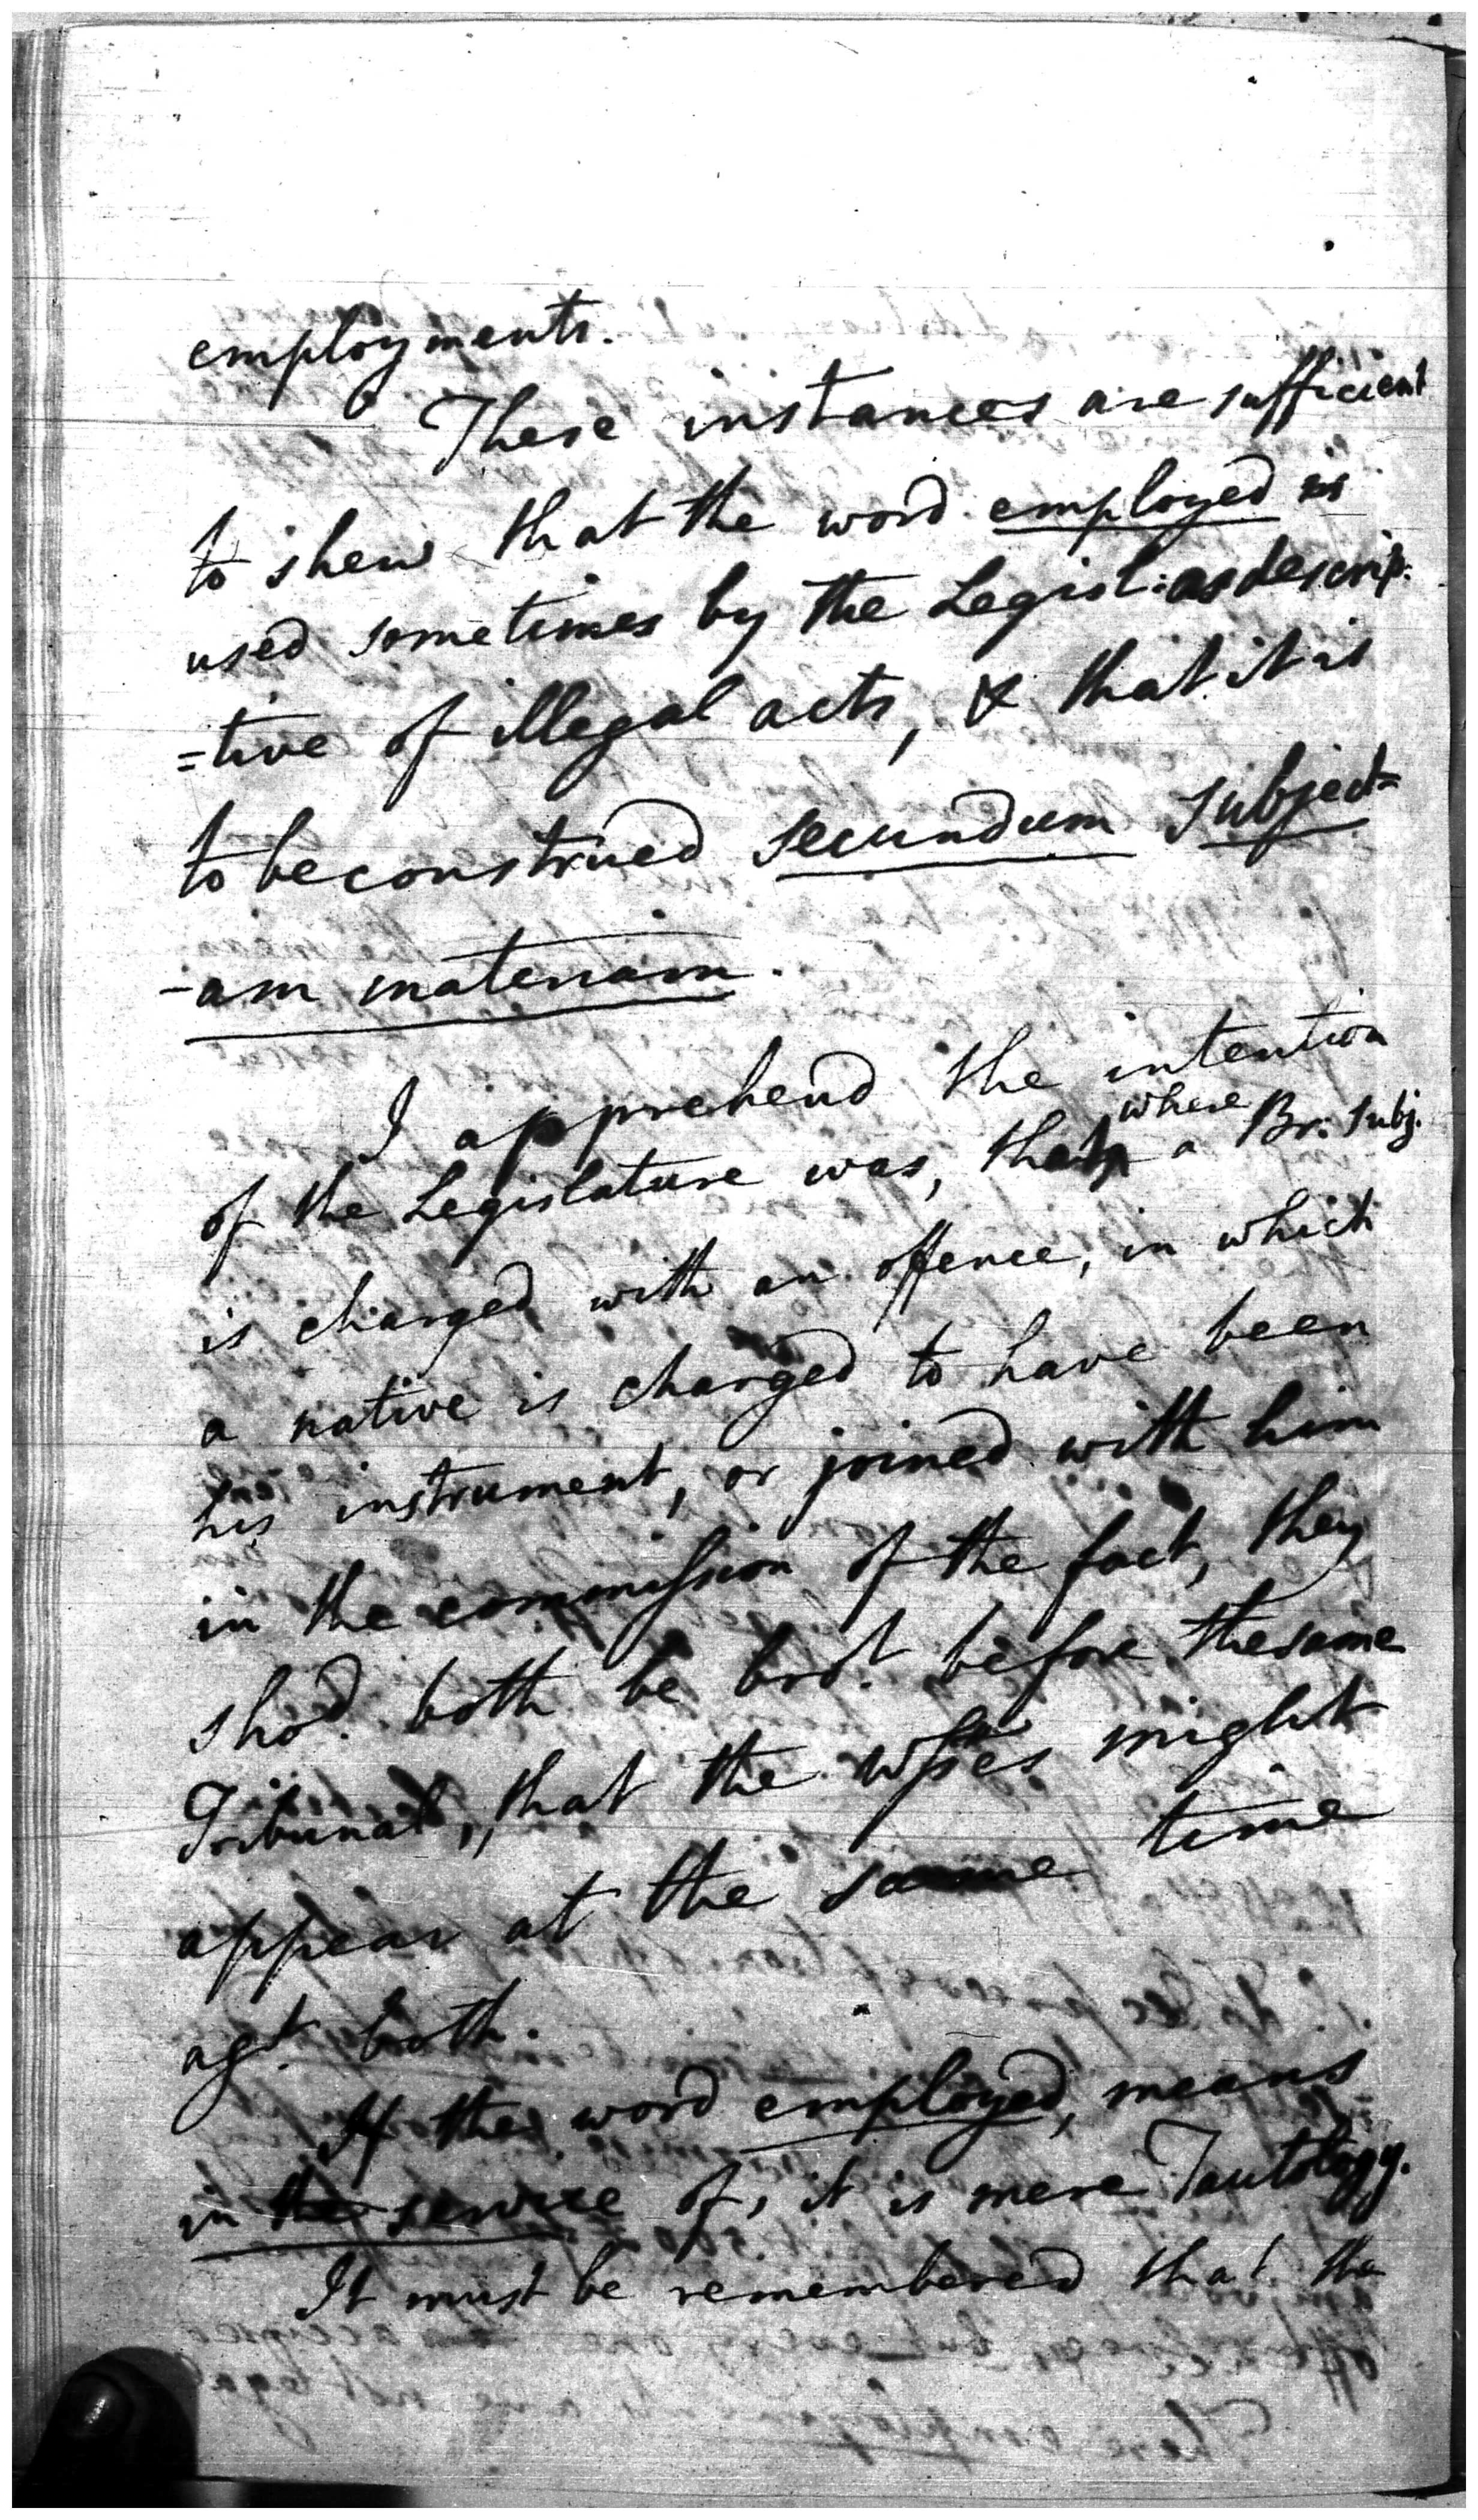 employments.
These instances are sufficient
to shew that the word employed is
used sometimes by the Legisl: as descrip:
=tive of illegal acts, & that it is
to be construed secundum subject=
-am materiam.
I apprehend the intention
of the Legislature was, that where a Br: Subj.
is charged with an offence, in which
a native is charged to have been
his instrument, or joined with him
in the commission of the fact, they
shod. both be brot. before the same
Tribunal, that the wsses might
appear at the same time
agt. both.
If the word employed, means
in the service of, it is mere Tautology.
It must be remembered that the